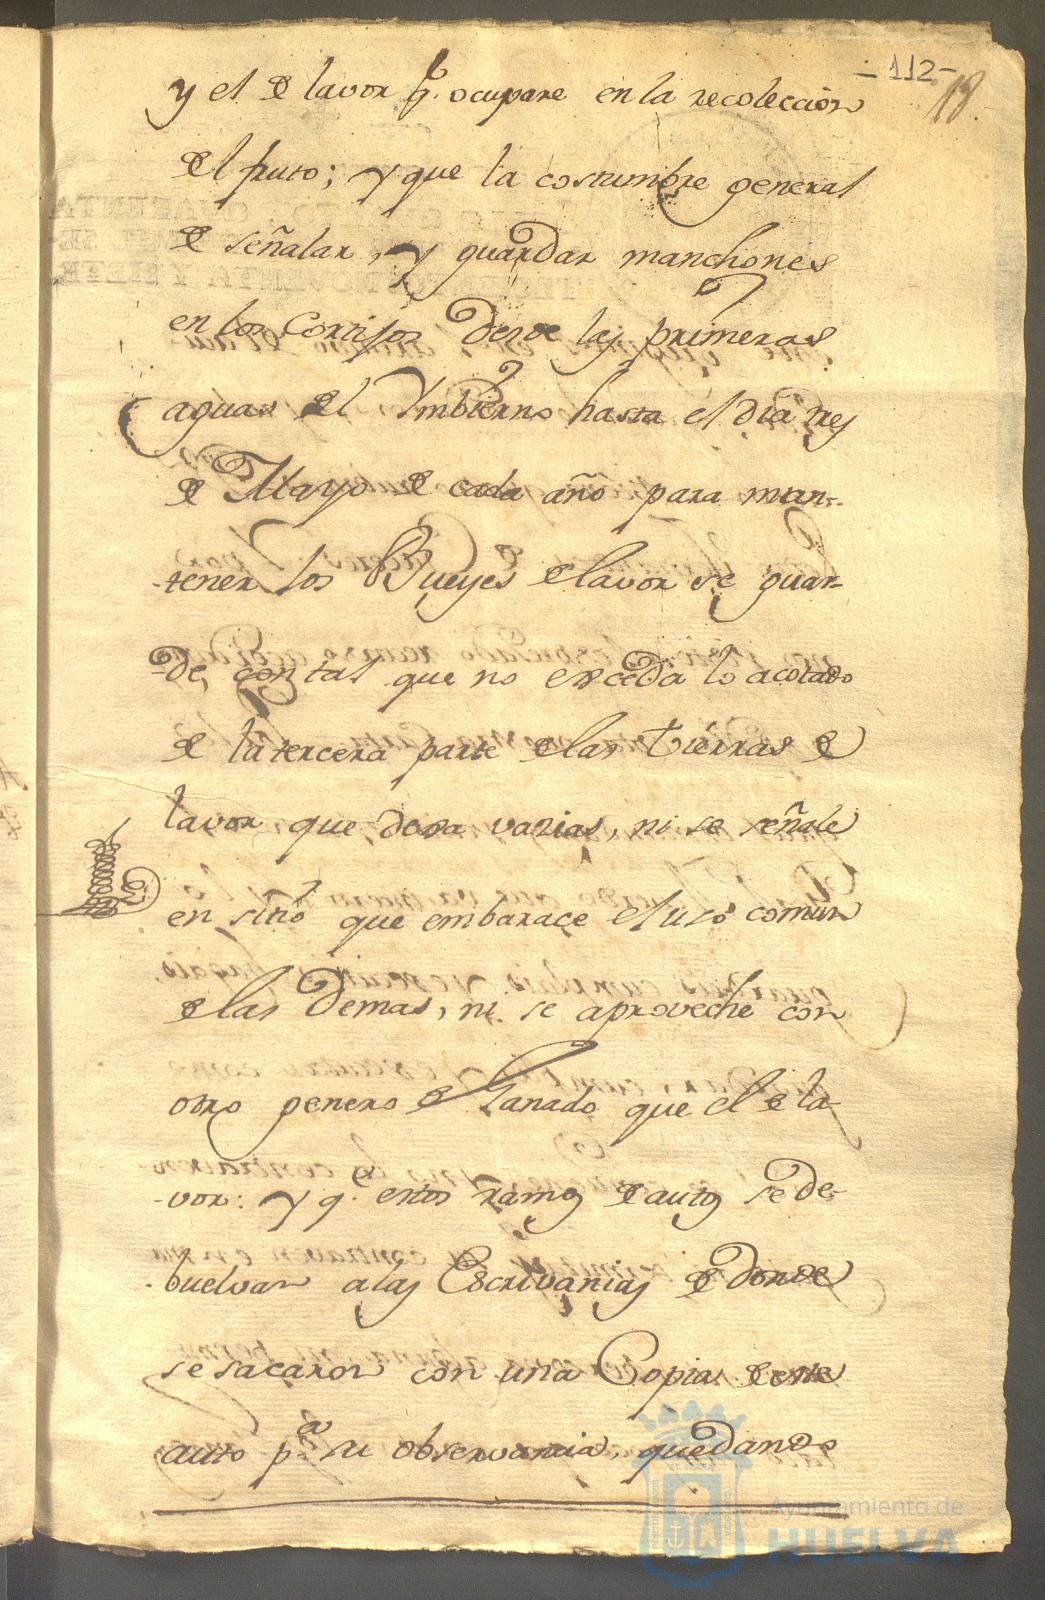 -112-
18.
y el de lavor q.e ocupare en la recoleccion
del fruto; y que la costumbre general
de señalar, y guardar manchones
en los Cortijos desde las primeras
aguas del Ymbierno hasta el dia tres
de Mayo de cada año para man-
-tener los Bueyes de lavor se guar-
-de, con tal que no exceda lo acotado
de la tercera parte de las tierras de
lavor que dexa vazias, ni se señale
en sitio que embarace el uso comun
de las demas, ni se aproveche con
otro genero de Ganado que el de la-
-vor: y q.e estos ramos de autos se de-
-buelvan a las Escrivanias de donde
se sacaron con una Copia de este
auto p.a su observancia, quedando
Ayuntamiento de
HUELVA